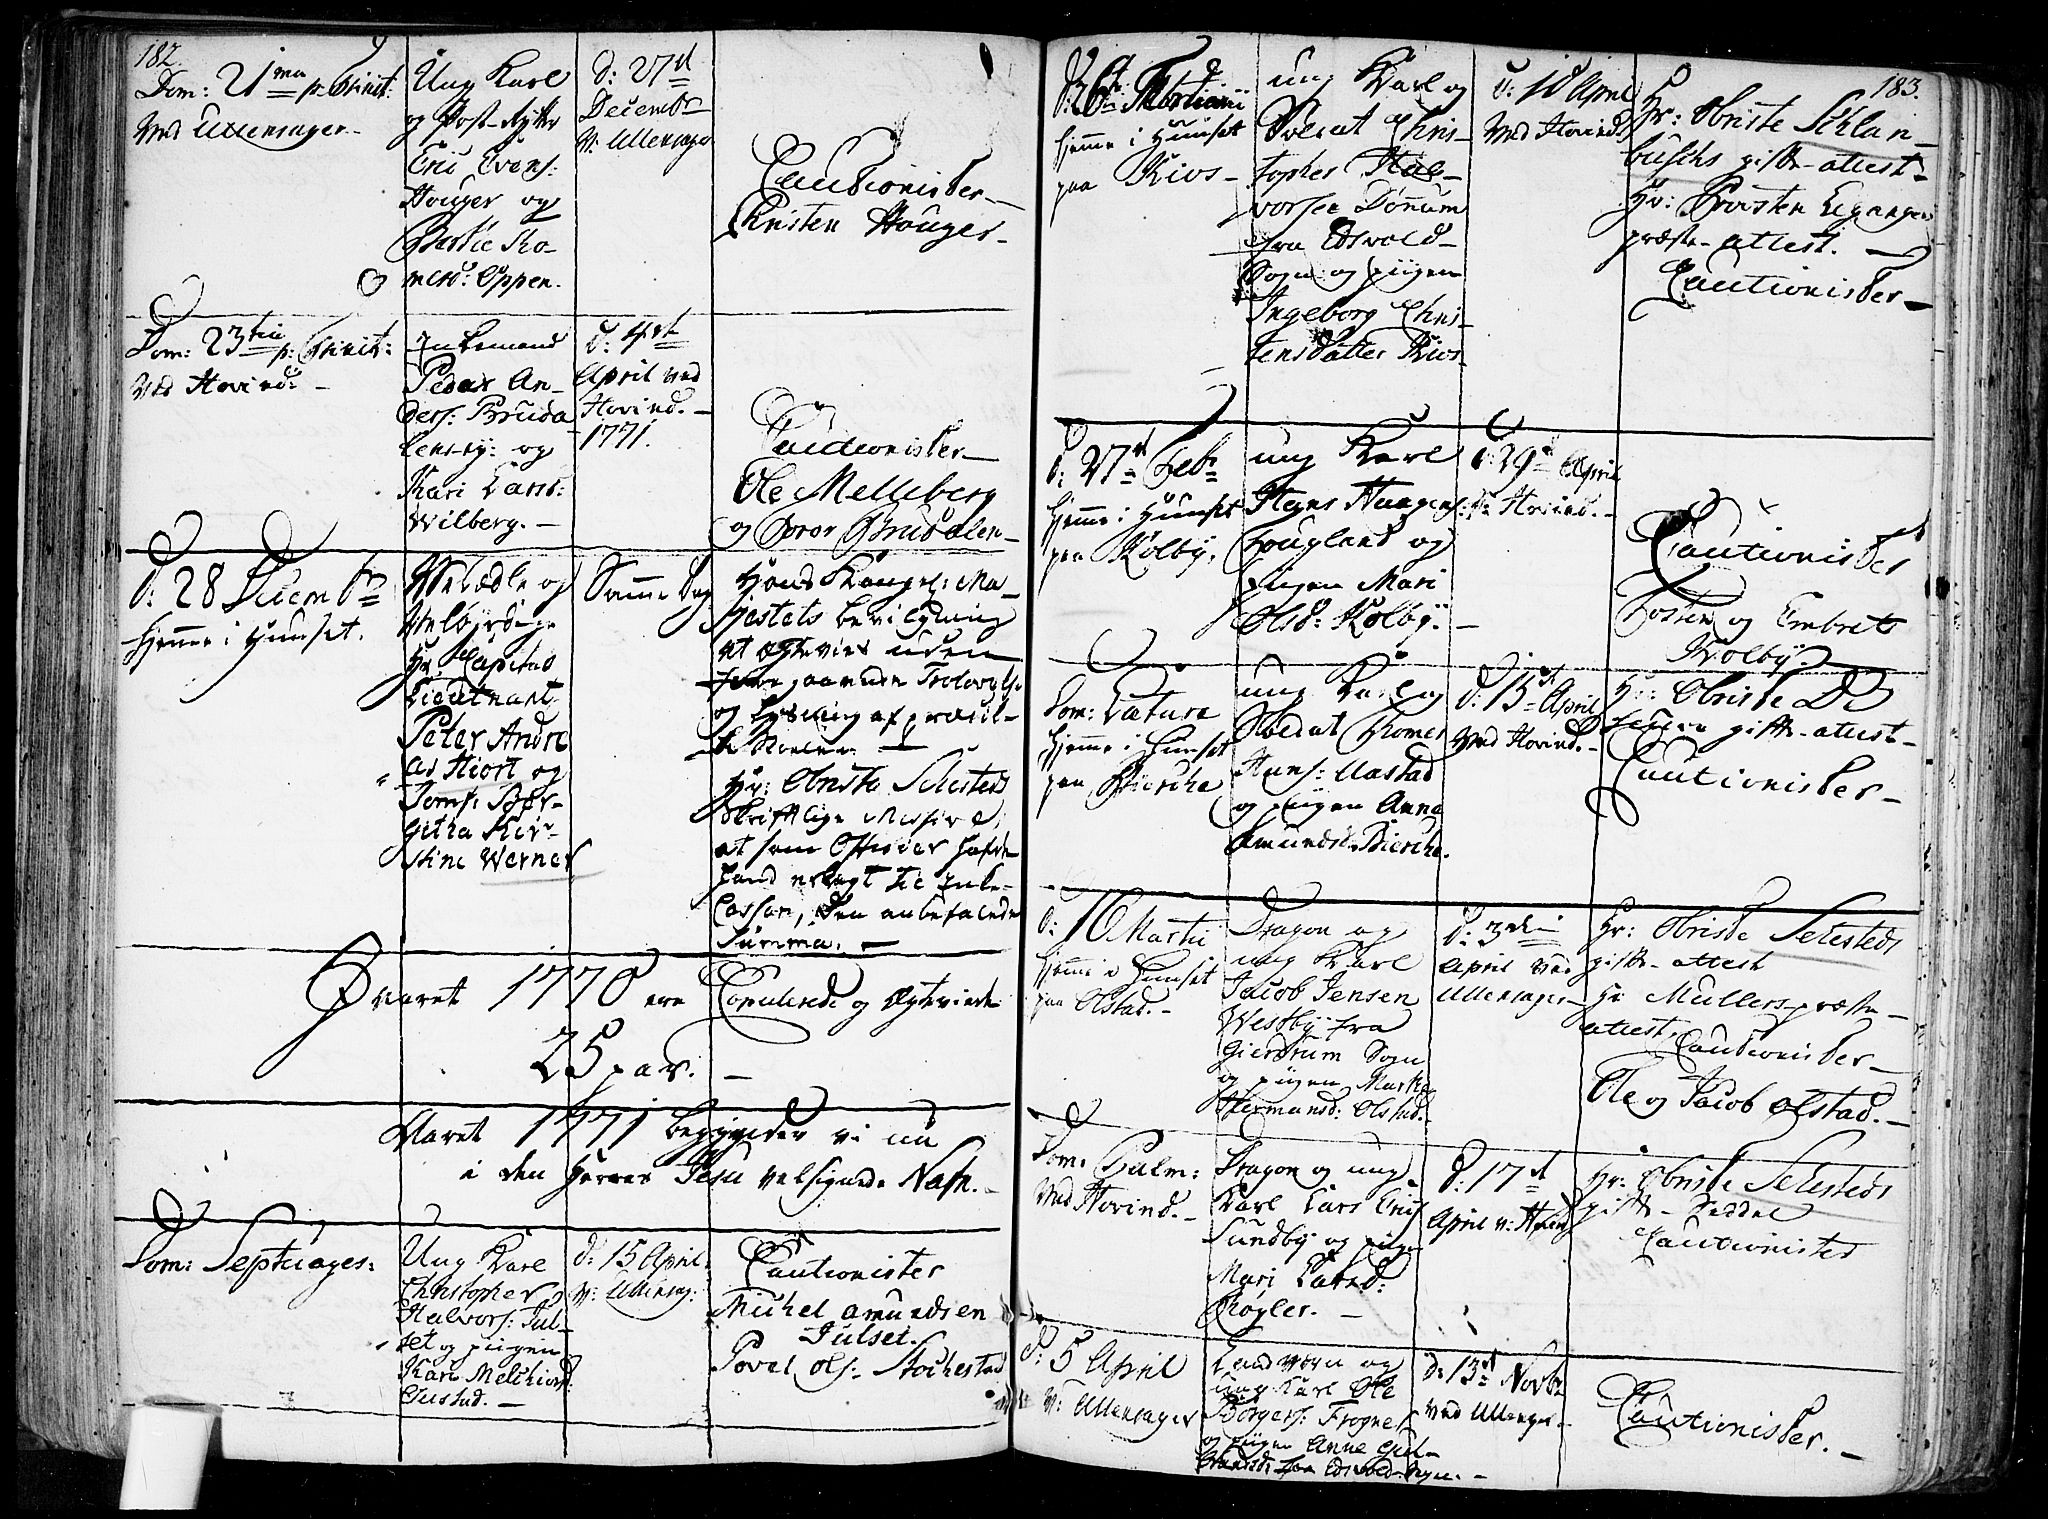 182.
Dom: 21 ma p. Trinit:
Ved Ullensager.
Ung Karl
og Post-Rytter
Eric Evens:
Houger og
Berthe Tho-
mesd: Oppen.
d: 27 d
Decembr
v: Ullensager
Cautionister
Christen Houger
Dom: 23 tia p: Trinit:
Ved Hovind.
Enkemand
Peder An-
ders: Bruda-
len-ey: og
Kari Larsd:
Wilberg.
d: 4 de
April ved
Hovind.
1771.
Cautionister
Ole Melleberg
og Bror Brudalen
d: 28 Decembr
hjemme i Huuset.
Velædle og
Velbyrdige
Hr Capitai
Lieutnant
Peter Andre
as Hiort og
Jomf: Bir-
githa Kir-
stine Werner
Samme Dag
Hans Kongel: Ma-
jestets bevilgning
at Egtevies uden
foregaaende Trolovelse
og Lysning af prædike-
stoelen
Hr: Obriste Selesteds
Skrifftlige Missive,
at som Officier hafde
hand erlagt til Enke-
Cassan, den anbefalede
Summa.
Aaret 1770 ere Copulerede og Egteviede
25 par.
Aaret 1771 begynder vi nu
i den Herres Jesu velsignede Nafn.
Dom: Septuages:
Ung Karl
Christopher
Halvors: Jul-
set og piigen
Kari Melchiorsd:
d: 15 April
v: Ullensag:
Cautionister
Michel Amundsen
Julset.
Povel Ols: Stochestad
183.
d: 26 Februarii
hjemme i Huuset
paa Kios
ung Karl og
Soldat Chris-
topher Hal-
vorsen Dønnum
fra Edsvold
Sogn og piigen
Ingeborg Chris-
tensdatter Kios
d: 10 April
Ved Hovind
Hr: Obriste Schlan-
buschs gifte-attest
Hr: Provsten
præste-attest.
Cautionister
d: 27 d Febr
hjemme i Huuset
paa Kolby.
ung Karl
Hans Haagens:
Hougland og
piigen Mari
Olsd: Kolby.
d: 29 April
v: Hovind.
Cautionister
Tosten og Embret
Kolby.
Dom: Lætare
hjemme i Huuset
paa Bierche
ung Karl og
Soldat Thomes
Hans: Aastad
og piigen Anne
Amundsd: Bierche.
d: 15 d April
Ved Hovind.
Hr: Obriste De
gifte-attest
Cautionister
d: 16 Martii
hjemme i Huuset
paa Olstad.
Dragon og
ung Karl
Jacob Jensen
Westby fra
Gierdrum Sogn
og piigen Marthe
Hermansd: Olstad.
d: 3 die
April ved
Ullensager
Hr: Obriste Selesteds
gifte-attest
Hr Mullers præste-
attest,
Cautionister
Ole og Jacob Olstad.
Dom: Palm:
Ved Hovind.
Dragon og ung
Karl Lars Erics:
Sundby og piigen
Mari Larsd:
Rogler.
d: 17 d
April v: Hovind
Hr: Obriste Selesteds
gifte-Seddel
Cautionister
d: 5 April
v: Ullensager
Landværn og
ung Karl Ole
Børgers: Frogner
og piigen Anne Gul-
brandsd: fra Edsvold Sogn.
d: 13 d Novbr
ved Ullensager
Cautionister.